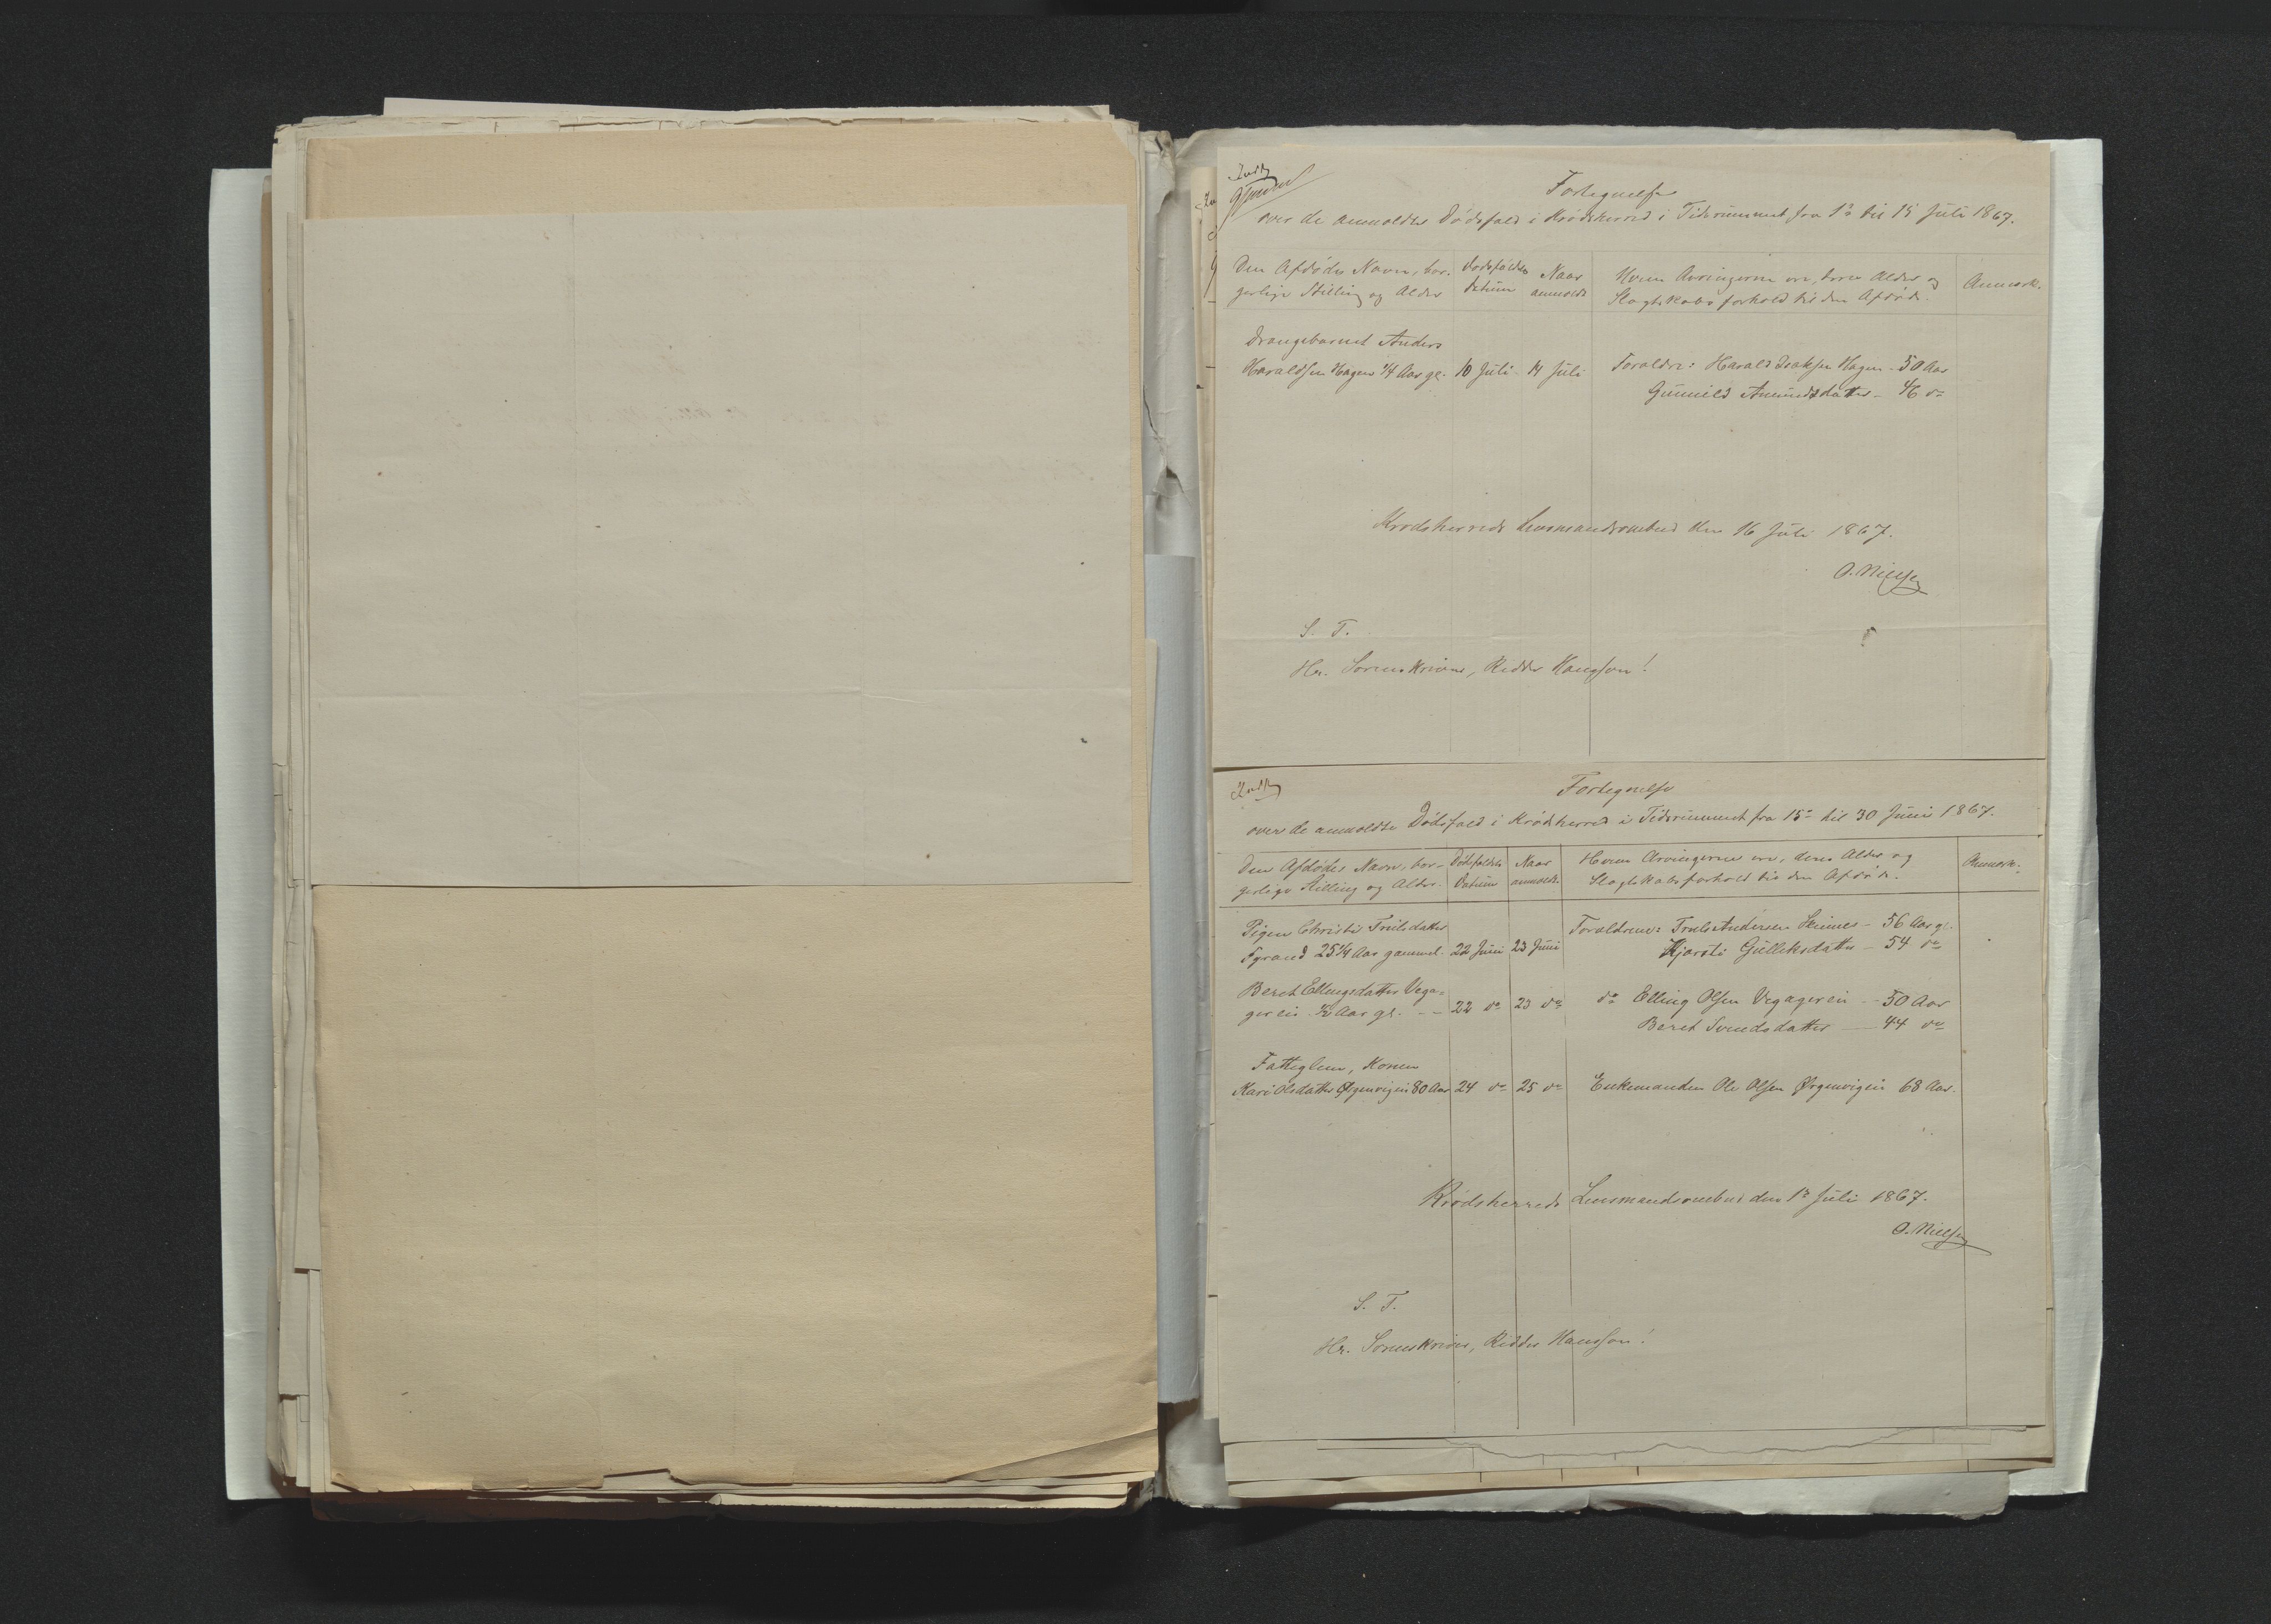 Fortegnelse
over de anmeldte Dødsfald i Krødsherred i Tidsrummet fra 1ste til 15 Juli 1867.
Den Afdødes Navn, bor-
gerlige Stilling og Alder
Dødsfaldets
Datum
Naar
anmeldt
Hvem Arvingerne ere, deres Alder og
Slagtskabsforhold til den Afdøde.
Anmærk.
Drengebarnet Anders
Haraldsen Hagen 1/4 Aar gl. 10 Juli 14 Juli Forældre: Harald Isaksen Hagen - 50 Aar
Gunnild Amundsdatter - 46 do
Krødsherreds Lensmandsombud den 16 Juli 1867.
O. Nielsen
S. T.
Hr. Sorenskriver, Ridder Hansson!
Fortegnelse
over de anmeldte Dødsfald i Krødsherred i Tidsrummet fra 15de til 30 Juni 1867.
Den Afdødes Navn, bor-
gerlige Stilling og Alder.
Dødsfaldets
Datum
Naar
anmeldt.
Hvem Arvingerne ere, deres Alder og
Slagtskabsforhold til den Afdøde.
Anmærk.
Pigen Christi Trulsdatter
25 1/4 Aar gammel. 22 Juni 23 Juni
Forældrene: Truls Andersen - 56 Aar gl.
Kjersti Gulleksdatter - 54 do
Beret Ellingsdatter Vega-
gereie 1/2 Aar gl. - - 22 do 23 do do Elling Olsen Vegagereie - 50 Aar
Beret Svendsdatter - 44 do
Fattiglem, Konen
Kari Olsdatter Ørgenvigeie 80 Aar 24 do 25 do Enkemanden Ole Olsen Ørgenvigeie 68 Aar.
Krødsherreds Lensmandsombud den 1ste Juli 1867.
O. Nielsen
S. T.
Hr. Sorenskriver, Ridder Hansson!